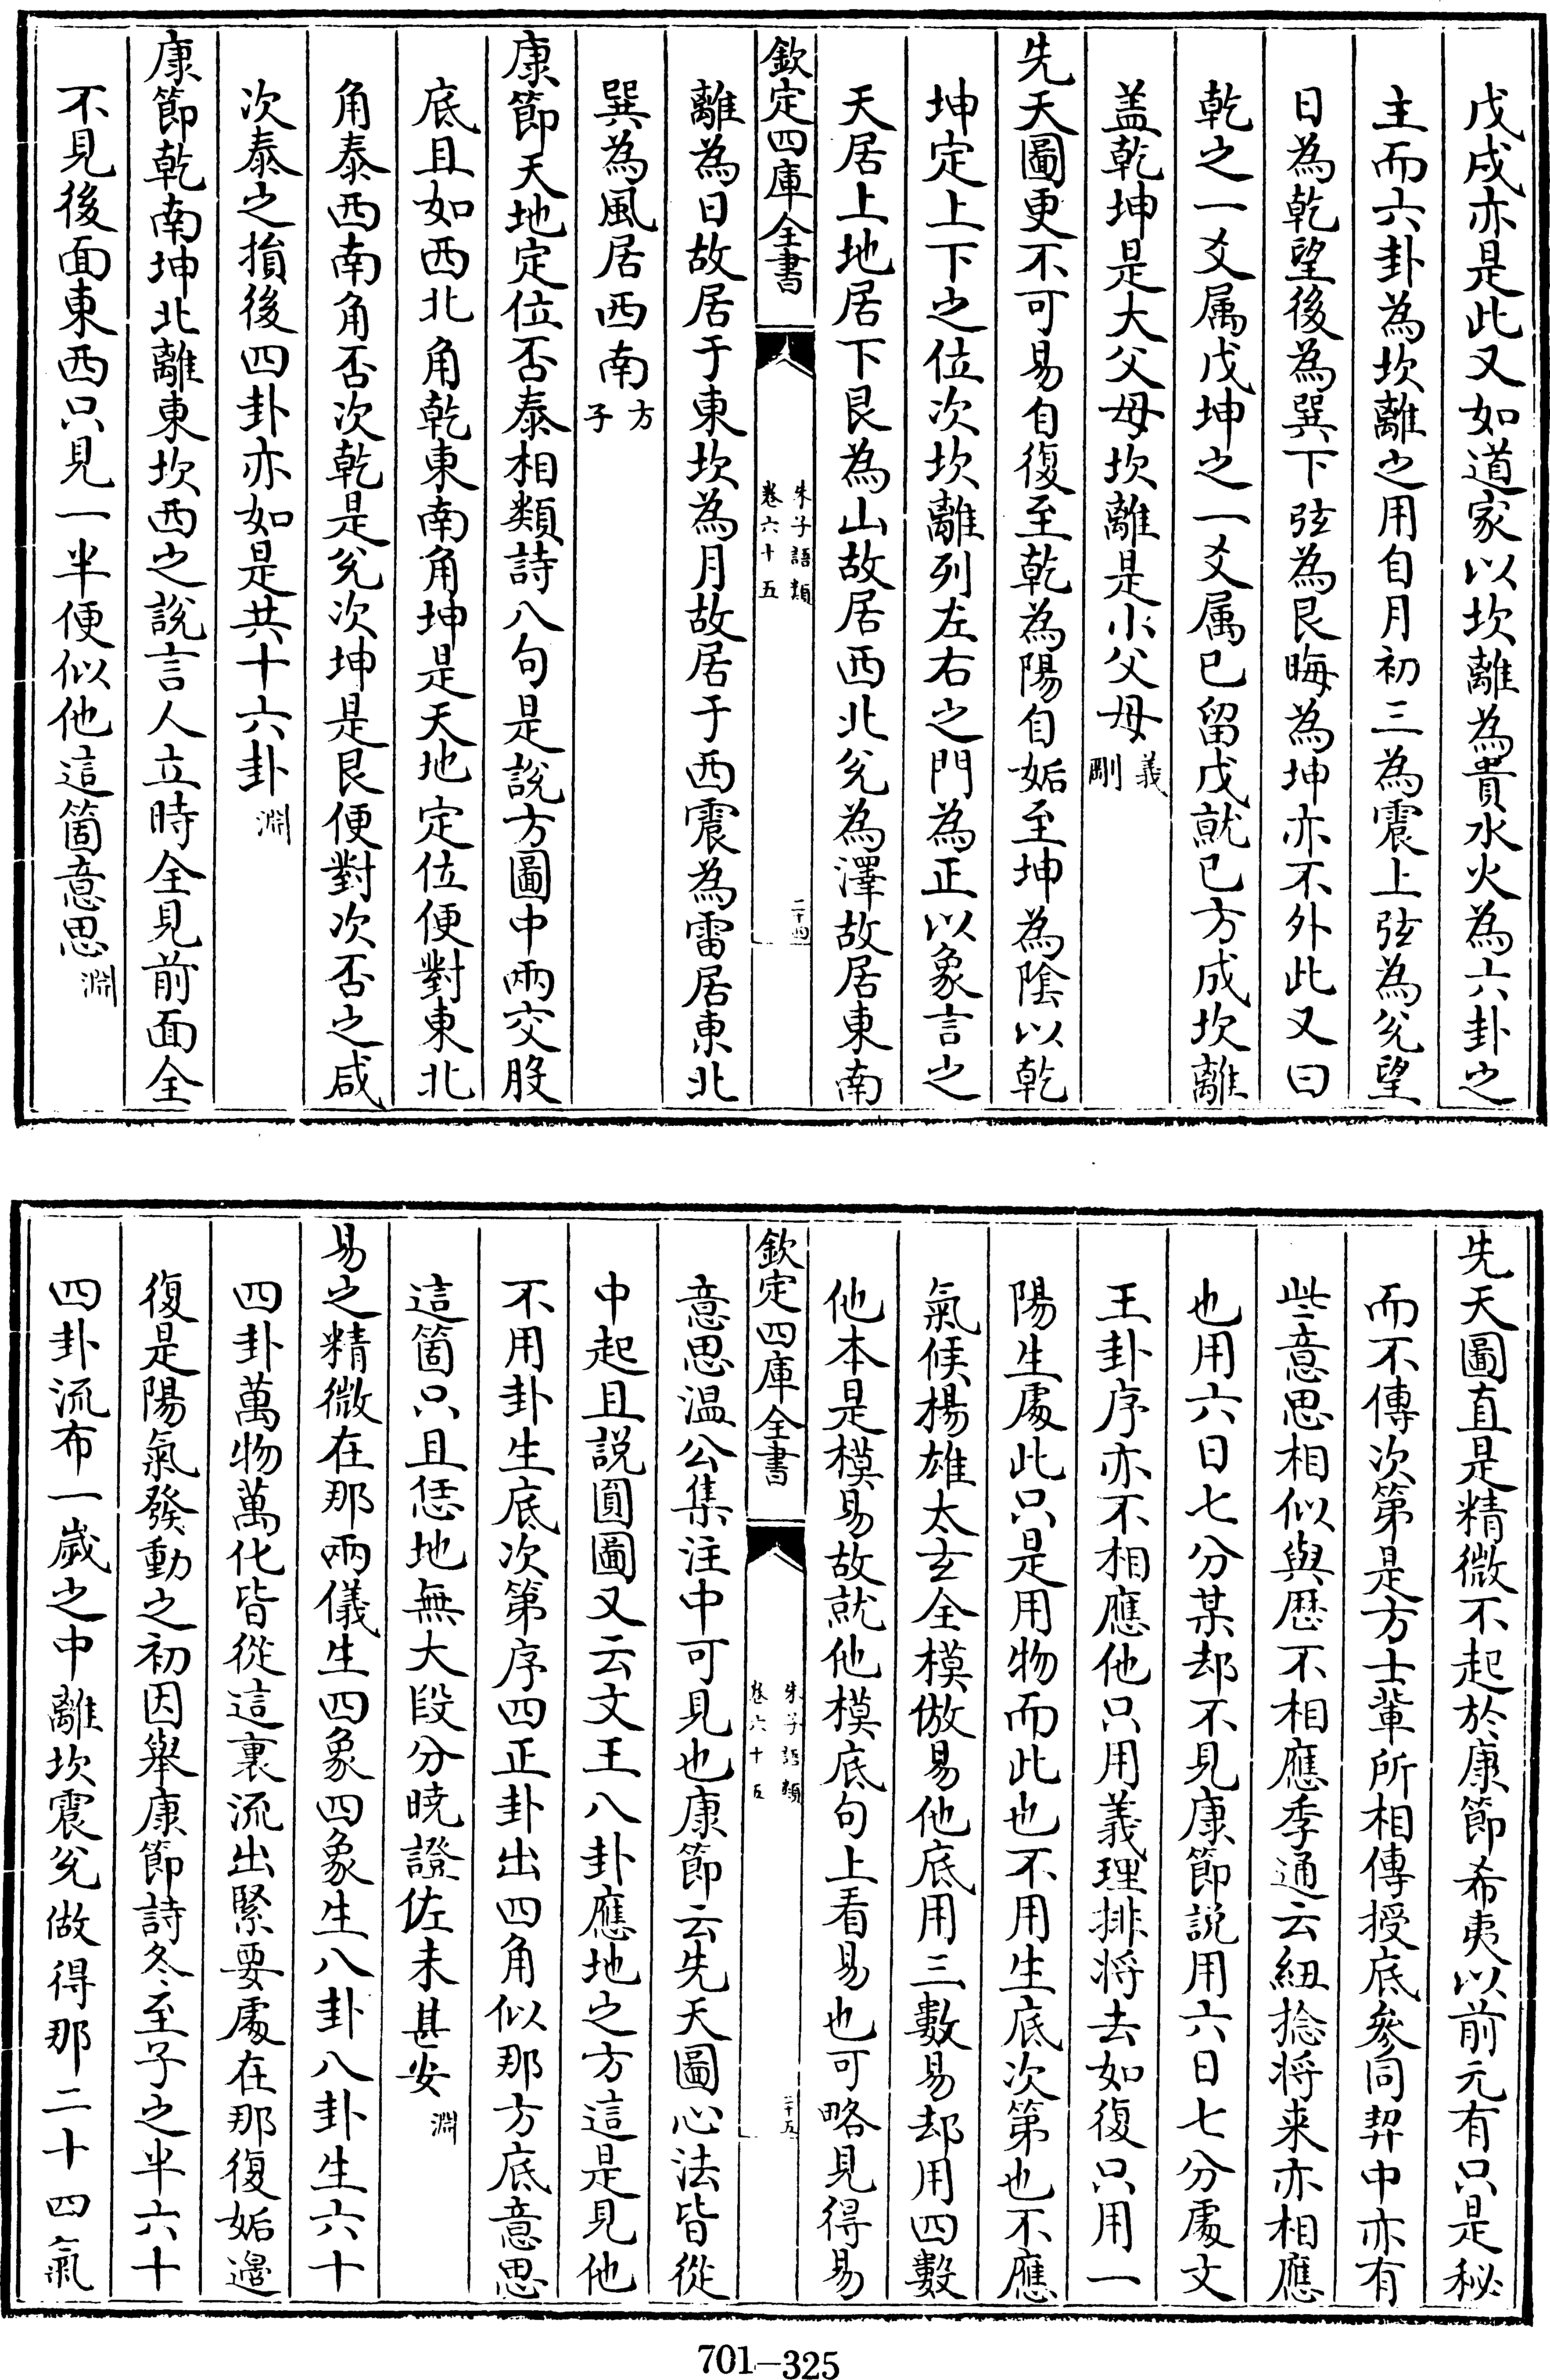 戊戌亦是此又如道家以坎離為貴水火為六卦之
主而六卦為坎離之用自月初三為震上弦為兊望
日為乾望後為巽下弦為艮晦為坤亦不外此又曰
乾之一爻属戊坤之一爻属已留戊就已方成坎離
盖乾坤是大父母坎離是小父母義剛
先天圖更不可易自復至乾為陽自姤至坤為陰以乾
坤定上下之位次坎離列左右之門為正以象言之
天居上地居下艮為山故居西北兊為澤故居東南
欽定四庫全書 朱子語類 卷六十五 二十四
離為日故居于東坎為月故居于西震為雷居東北
巽為風居西南方子
康節天地定位否泰相類詩八句是說方圖中兩交股
底且如西北角乾東南角坤是天地定位便對東北
角泰西南角否次乾是兊次坤是艮便對次否之咸
次泰之損後四卦亦如是共十六卦淵
康節乾南坤北離東坎西之說言人立時全見前面全
不見後面東西只見一半便似他這箇意思淵
先天圖直是精微不起於康節希夷以前元有只是秘
而不傳次第是方士輩所相傳授底參同契中亦有
些意思相似與厯不相應季通云紐捻将来亦相應
也用六日七分某却不見康節說用六日七分處文
王卦序亦不相應他只用義理排将去如復只用一
陽生處此只是用物而此也不用生底次第也不應
氣候楊雄太玄全模倣易他底用三數易却用四數
他本是模易故就他模底句上看易也可略見得易
欽定四庫全書 朱子語類 卷六十五 二十五
意思温公集注中可見也康節云先天圖心法皆從
中起且說圓圖又云文王八卦應地之方這是見他
不用卦生底次第序四正卦出四角似那方底意思
這箇只且恁地無大段分曉證佐未甚安淵
易之精微在那兩儀生四象四象生八卦八卦生六十
四卦萬物萬化皆從這裏流出緊要處在那復姤邉
復是陽氣發動之初因舉康節詩冬至子之半六十
四卦流布一歲之中離坎震兊做得那二十四氣
701—325